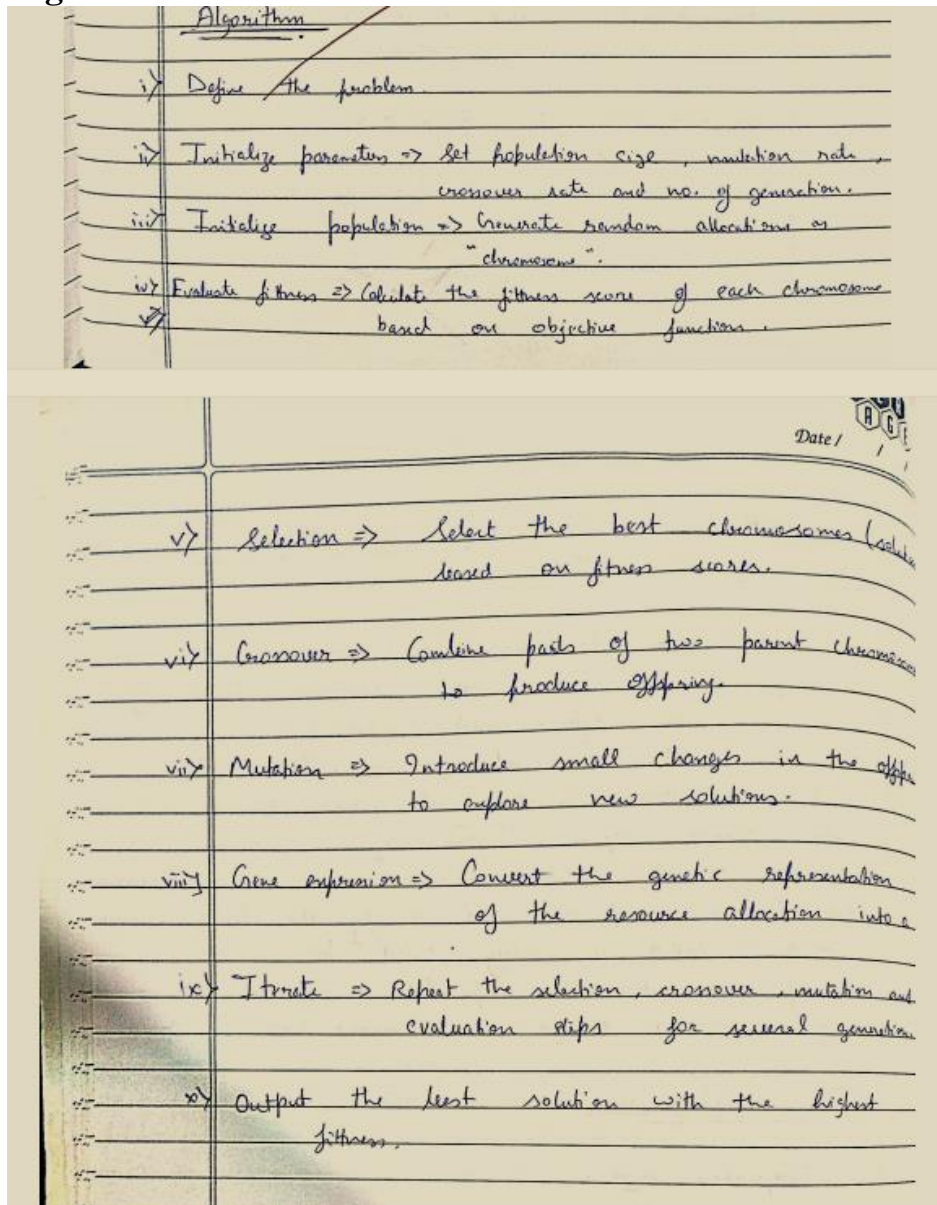 Algorithm
i) Define the problem.
ii) Initialize parameters => Set population size, mutation rate,
crossover rate and no. of generation.
iii) Initialize population => Generate random allocations as
"chromosome".
iv) Evaluate fittness => Calculate the fittness score of each chromosome
v) based on objective functions.
Date /   /
v) Selection => Select the best chromosomes (
based on fitness scores.
vi) Crossover => Combine parts of two parent
to produce offspring.
vii) Mutation => Introduce small changes in the
to explore new solutions.
viii) Gene expression => Convert the genetic representation
of the resource allocation into a
ix) Iterate => Repeat the selection, crossover, mutation and
evaluation steps for several generation
x) Output the best solution with the highest
fittness.